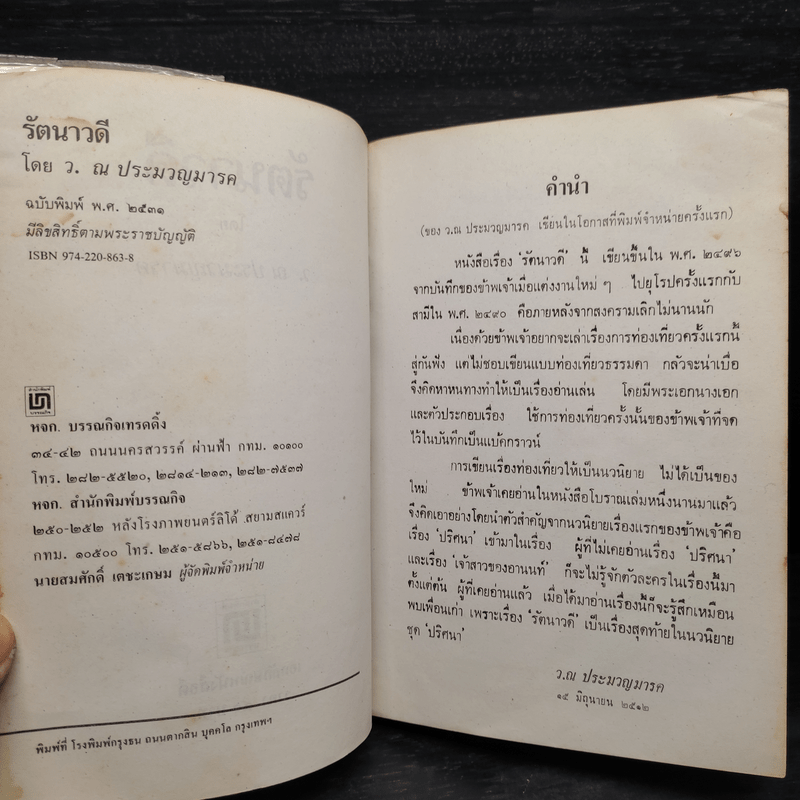 รัตนาวดี
โดย ว. ณ ประมวญมารค
ฉบับพิมพ์ พ.ศ. ๒๕๓๑
มีลิขสิทธิ์ตามพระราชบัญญัติ
ISBN 974-220-863-8
หจก. บรรณกิจเทรดดิ้ง
๓๔-๔๒ ถนนนครสวรรค์ ผ่านฟ้า กทม. ๑๐๑๐๐
โทร. ๒๘๒-๕๕๒๐, ๒๘๑๔-๒๑๓, ๒๘๒-๗๕๓๗
หจก. สำนักพิมพ์บรรณกิจ
๒๕๐-๒๕๒ หลังโรงภาพยนตร์ลิโด้ สยามสแควร์
กทม. ๑๐๕๐๐ โทร. ๒๕๑-๕๘๖๖, ๒๕๑-๘๔๗๘
นายสมศักดิ์ เตชะเกษม ผู้จัดพิมพ์จำหน่าย
พิมพ์ที่ โรงพิมพ์กรุงธน ถนนตากสิน บุคคโล กรุงเทพฯ
คำนำ
(ของ ว.ณ ประมวญมารค เขียนในโอกาสที่พิมพ์จำหน่ายครั้งแรก)
หนังสือเรื่อง 'รัตนาวดี' นี้ เขียนขึ้นใน พ.ศ. ๒๔๙๖
จากบันทึกของข้าพเจ้าเมื่อแต่งงานใหม่ ๆ ไปยุโรปครั้งแรกกับ
สามีใน พ.ศ. ๒๔๙๐ คือภายหลังจากสงครามเลิกไม่นานนัก
เนื่องด้วยข้าพเจ้าอยากจะเล่าเรื่องการท่องเที่ยวครั้งแรกนี้
สู่กันฟัง แต่ไม่ชอบเขียนแบบท่องเที่ยวธรรมดา กลัวจะน่าเบื่อ
จึงคิดหาหนทางทำให้เป็นเรื่องอ่านเล่น โดยมีพระเอกนางเอก
และตัวประกอบเรื่อง ใช้การท่องเที่ยวครั้งนั้นของข้าพเจ้าที่จด
ไว้ในบันทึกเป็นแบ้คกราวน์
การเขียนเรื่องท่องเที่ยวให้เป็นนวนิยาย ไม่ได้เป็นของ
ใหม่ ข้าพเจ้าเคยอ่านในหนังสือโบราณเล่มหนึ่งนานมาแล้ว
จึงคิดเอาอย่างโดยนำตัวสำคัญจากนวนิยายเรื่องแรกของข้าพเจ้าคือ
เรื่อง 'ปริศนา' เข้ามาในเรื่อง ผู้ที่ไม่เคยอ่านเรื่อง 'ปริศนา'
และเรื่อง 'เจ้าสาวของอานนท์' ก็จะไม่รู้จักตัวละครในเรื่องนี้มา
ตั้งแต่ต้น ผู้ที่เคยอ่านแล้ว เมื่อได้มาอ่านเรื่องนี้ก็จะรู้สึกเหมือน
พบเพื่อนเก่า เพราะเรื่อง 'รัตนาวดี' เป็นเรื่องสุดท้ายในนวนิยาย
ชุด 'ปริศนา'
ว.ณ ประมวญมารค
๑๕ มิถุนายน ๒๕๑๒